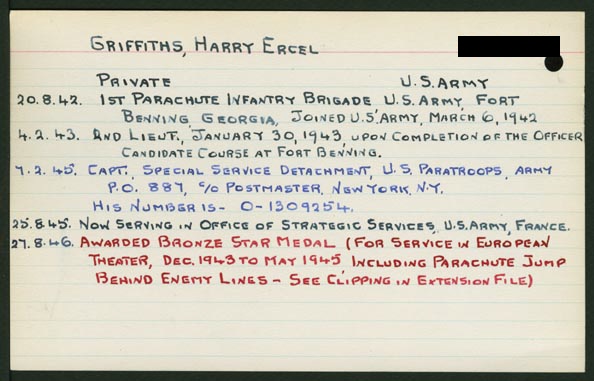 GRIFFITHS, HARRY ERCEL
PRIVATE U.S. ARMY
20.8.42. 1ST PARACHUTE INFANTRY BRIGADE, U.S. ARMY, FORT
BENNING, GEORGIA, JOINED U.S. ARMY, MARCH 6, 1942
4.2.43. 2ND LIEUT., JANUARY 30, 1943, UPON COMPLETION OF THE OFFICER
CANDIDATE COURSE AT FORT BENNING.
7.2.45. CAPT., SPECIAL SERVICE DETACHMENT, U.S. PARATROOPS, ARMY
P.O. 887, C/O POSTMASTER, NEW YORK, N.Y.
HIS NUMBER IS - O-1309254.
25.8.45. NOW SERVING IN OFFICE OF STRATEGIC SERVICES, U.S. ARMY, FRANCE.
27.8.46. AWARDED BRONZE STAR MEDAL (FOR SERVICE IN EUROPEAN
THEATER, DEC. 1943 TO MAY 1945 INCLUDING PARACHUTE JUMP
BEHIND ENEMY LINES - SEE CLIPPING IN EXTENSION FILE)